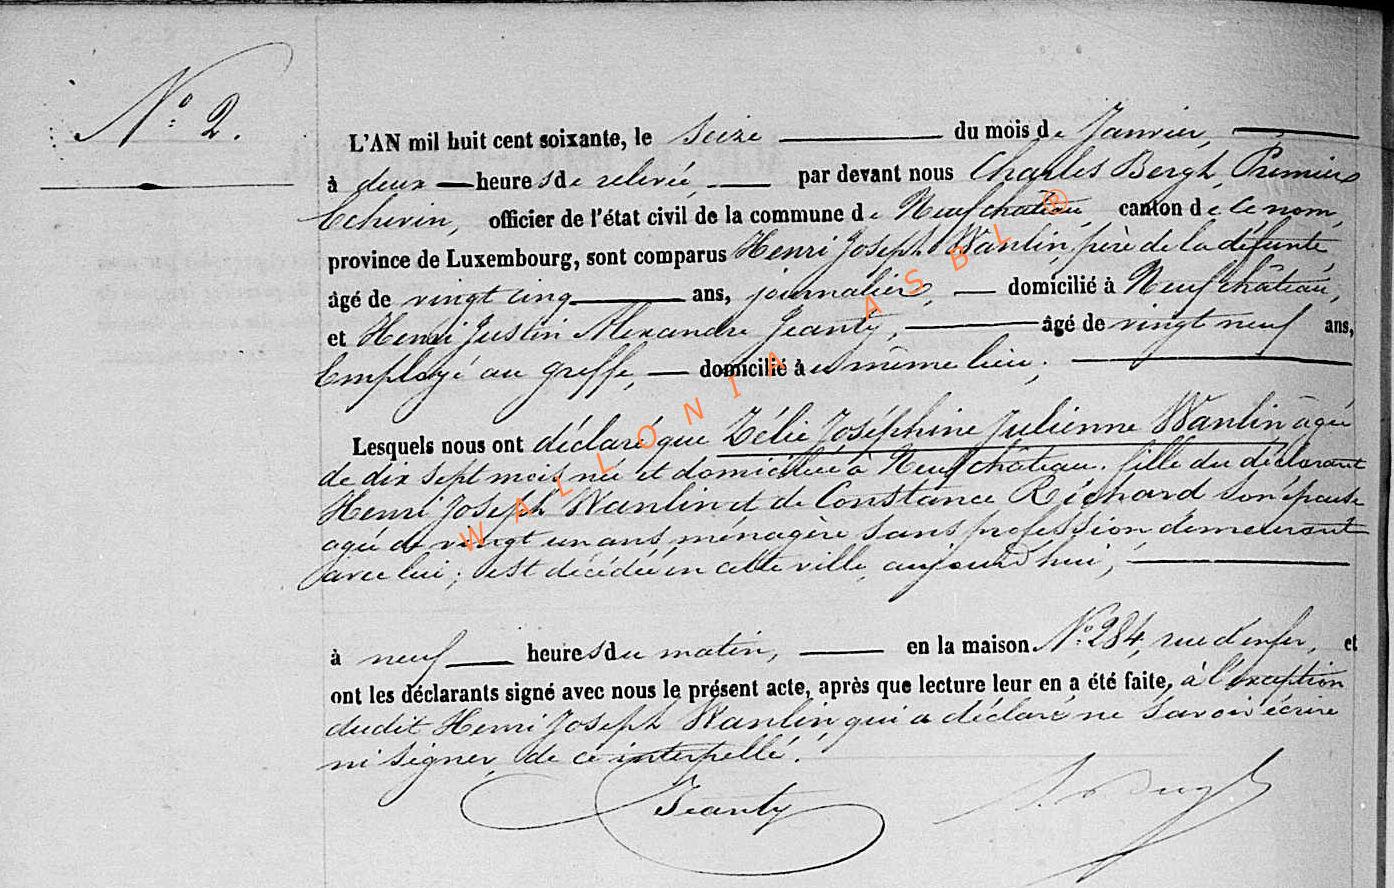 N° 2.
L'AN mil huit cent soixante, le seize du mois de Janvier,
à deux heures de relevée, par devant nous Charles Bergh, Premier
Echevin, officier de l'état civil de la commune de Neufchâteau canton de ce nom,
province de Luxembourg, sont comparus Henri Joseph Wanlin, père de la défunte,
âgé de vingt cinq ans, journalier, domicilié à Neufchâteau,
et Henri Justin Alexandre Jeanty, âgé de vingt neuf ans,
Employé au greffe, domicilié au même lieu;
Lesquels nous ont déclaré que Zélie Joséphine Julienne Wanlin âgée
de dix sept mois née et domiciliée à Neufchâteau, fille du déclarant
Henri Joseph Wanlin et de Constance Richard son épouse
agée de vingt un ans ménagère sans profession demeurant
avec lui; est décédée en cette ville aujourd'hui,
à neuf heures du matin, en la maison N° 284, rue d'enfer, et
ont les déclarants signé avec nous le présent acte, après que lecture leur en a été faite, à l'exception
dudit Henri Joseph Wanlin qui a déclaré ne savoir écrire
ni signer, de ce interpellé.
Jeanty
WALLONIA ASBL ®